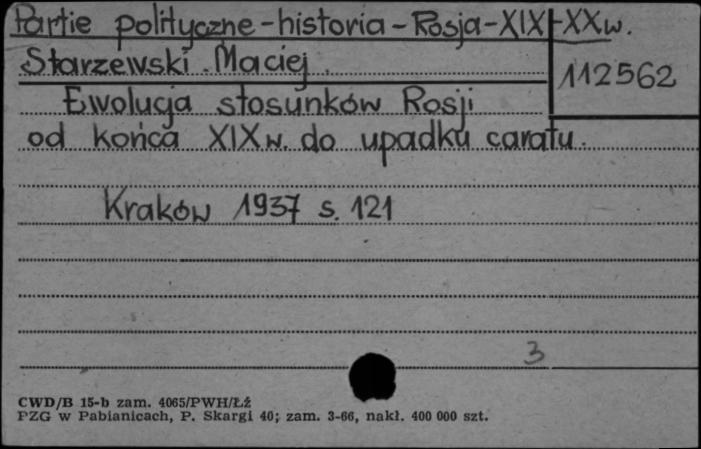 Partie polityczne-historia-Rosja-XIX-XXw.
Starzewski Maciej.
112562
Ewolucja stosunków Rosji
od końca XIXw. do upadku caratu.
Kraków 1937 s. 121
3
CWD/B 15-b zam. 4065/PWH/Łź
PZG w Pabianicach, P. Skargi 40; zam. 3-66, nakł. 400 000 szt.